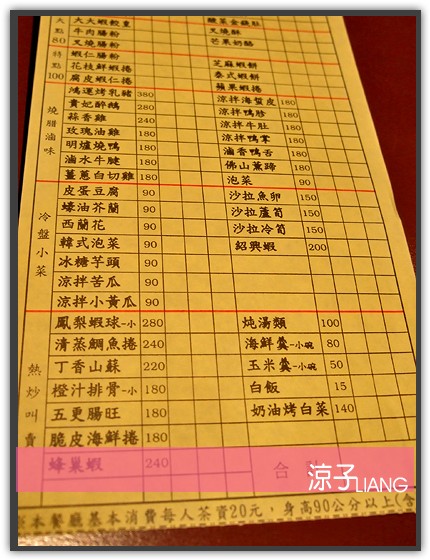 大點80
大大蝦餃皇
牛肉腸粉
叉燒腸粉
叉燒酥
芒果奶酪
特點100
蝦仁腸粉
花枝鮮蝦捲
腐皮蝦仁捲
芝麻蝦餅
泰式蝦餅
蘋果蝦捲
燒腊滷味
鴻運烤乳豬 380
貴妃醉鵝 280
蒜香雞 240
玫瑰油雞 180
明爐燒鴨 180
滷水牛腱 180
薑蔥白切雞 180
涼拌海蜇皮 180
涼拌鴨胗 180
涼拌牛肚 180
涼拌鴨掌 180
滷香鴨舌 180
佛山薰蹄 180
泡菜 90
冷盤小菜
皮蛋豆腐 90
蠔油芥蘭 90
西蘭花 90
韓式泡菜 90
冰糖芋頭 90
涼拌苦瓜 90
涼拌小黃瓜 90
沙拉魚卵 150
沙拉蘆筍 150
沙拉冷筍 150
紹興蝦 200
熱炒叫賣
鳳梨蝦球-小 280
清蒸鯛魚捲 240
丁香山蘇 220
橙汁排骨-小 180
五更腸旺 180
脆皮海鮮捲 180
蜂巢蝦 240
炖湯類 100
海鮮羹-小碗 80
玉米羹-小碗 50
白飯 15
奶油烤白菜 140
合計
涼子LIANG
本餐廳基本消費每人茶資20元，身高90公分以上(含